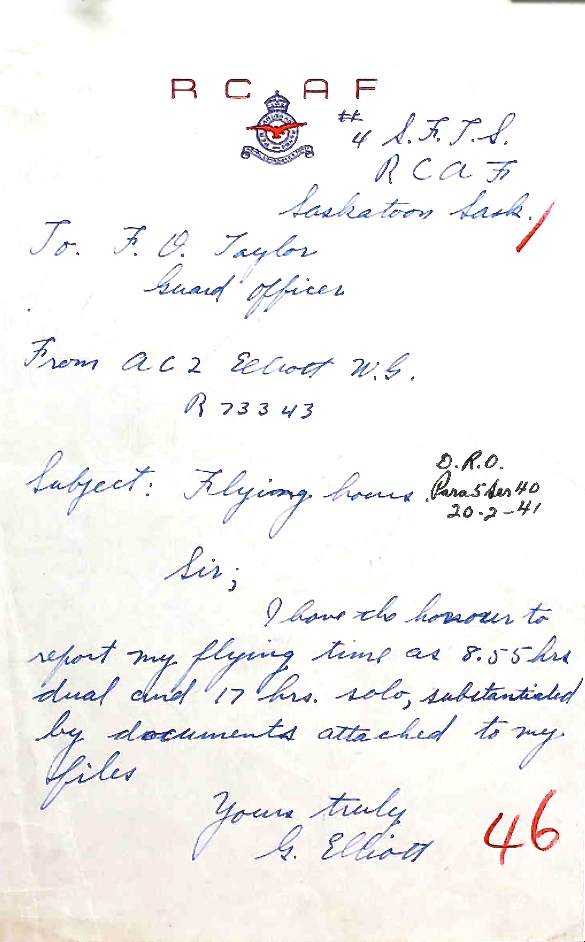 R C A F
# 4 S.F.T.S.
R C A F
Saskatoon Sask.
To. F. O. Taylor
Guard Officer
From A C 2 Elliott W.G.
R 73343
Subject: Flying hours.
D.R.O.
Para 5 Ser 40
20-2-41
Sir;
I have the honour to
report my flying time as 8.55 hrs
dual and 17 hrs. solo, substantiated
by documents attached to my
files
Yours truly
G. Elliott
46